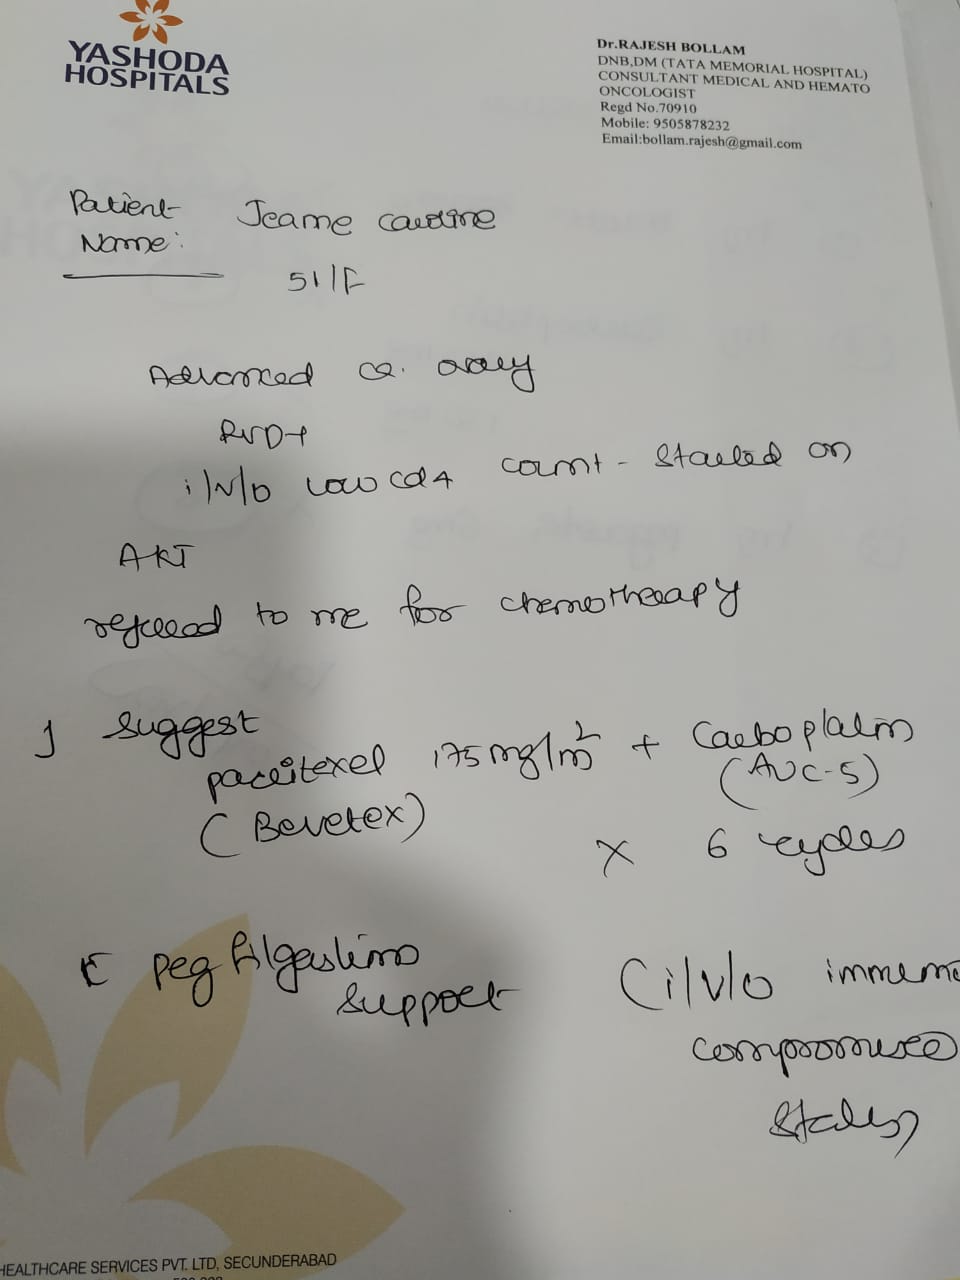 YASHODA
HOSPITALS
Dr.RAJESH BOLLAM
DNB,DM (TATA MEMORIAL HOSPITAL)
CONSULTANT MEDICAL AND HEMATO
ONCOLOGIST
Regd No.70910
Mobile: 9505878232
Email:bollam.rajesh@gmail.com
Patient Name: Jeame
51/F
Advanced ca. ovary
RVD+
i/v/o low cd4 count - started on
ART
referred to me for chemotherapy
I suggest
paclitexel 175mg/m² + Carboplatin
(Bevetex) (AUC-5)
x 6 cycles
c̄ peg filgrastim (i/v/o immuno
support compromised
status)
HEALTHCARE SERVICES PVT. LTD, SECUNDERABAD